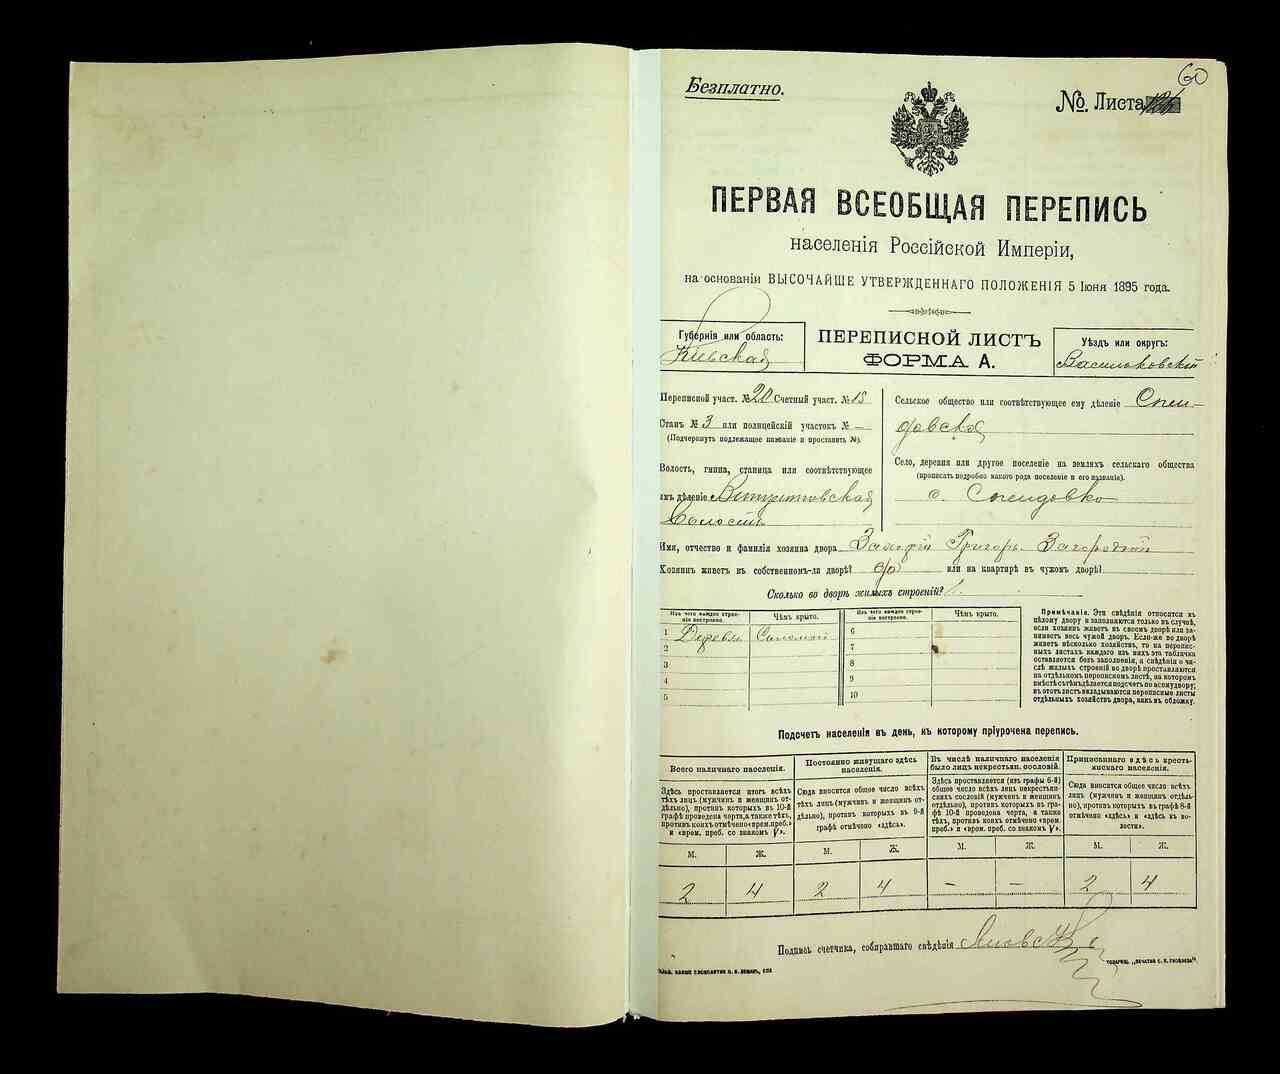 60
Безплатно.
№. Листа
ПЕРВАЯ ВСЕОБЩАЯ ПЕРЕПИСЬ
населенія Россійской Имперіи,
на основаніи ВЫСОЧАЙШЕ УТВЕРЖДЕННАГО ПОЛОЖЕНІЯ 5 Іюня 1895 года.
Губернія или область:
Кіевская
ПЕРЕПИСНОЙ ЛИСТЪ
ФОРМА А.
Уѣздъ или округъ:
Васильковскій
Переписной участ. № 20 Счетный участ. № 15
Станъ № 3 или полицейскій участокъ № —
(Подчеркнуть подлежащее названіе и проставить №).
Волость, гмина, станица или соотвѣтствующее
имъ дѣленіе
Волость
Сельское общество или соотвѣтствующее ему дѣленіе
Село, деревня или другое поселеніе на земляхъ сельскаго общества
(прописать подробно какого рода поселеніе и его названіе).
с.
Имя, отчество и фамилія хозяина двора Григорь. Загородній
Хозяинъ живетъ въ собственномъ-ли дворѣ? или на квартирѣ въ чужомъ дворѣ?
Сколько во дворѣ жилыхъ строеній? 1.
Изъ чего каждое строеніе построено.
Чѣмъ крыто.
Изъ чего каждое строеніе построено.
Чѣмъ крыто.
1 Дерев. Соломой
2
3
4
5
6
7
8
9
10
Примѣчаніе. Эти свѣдѣнія относятся къ
цѣлому двору и заполняются только въ случаѣ,
если хозяинъ живетъ въ своемъ дворѣ или занимаетъ
весь чужой дворъ. Если-же во дворѣ
живетъ нѣсколько хозяйствъ, то на переписныхъ
листахъ каждаго изъ нихъ эта табличка
оставляется безъ заполненія, а свѣдѣнія о числѣ
жилыхъ строеній во дворѣ проставляются
на отдѣльномъ переписномъ листѣ, на которомъ
вмѣстѣ съ тѣмъ дѣлается подсчетъ по всему двору;
въ этотъ листъ вкладываются переписные листы
отдѣльныхъ хозяйствъ двора, какъ въ обложку.
Подсчетъ населенія въ день, къ которому пріурочена перепись.
Всего наличнаго населенія.
Здѣсь проставляется итогъ всѣхъ
тѣхъ лицъ (мужчинъ и женщинъ отдѣльно),
противъ которыхъ въ 10-й
графѣ проведена черта, а также тѣхъ,
противъ коихъ отмѣчено «врем. преб.»
и «врем. преб. со знакомъ V».
Постоянно живущаго здѣсь
населенія.
Сюда вносится общее число всѣхъ
тѣхъ лицъ (мужчинъ и женщинъ отдѣльно),
противъ которыхъ въ 9-й
графѣ отмѣчено «здѣсь».
Въ числѣ наличнаго населенія
было лицъ некрестьян. сословій.
Здѣсь проставляется (изъ графы 6-й)
общее число всѣхъ лицъ некрестьянскихъ
сословій (мужчинъ и женщинъ
отдѣльно), противъ которыхъ въ графѣ
10-й проведена черта, а также
тѣхъ, противъ коихъ отмѣчено «врем.
преб.» и «врем. преб. со знакомъ V».
Приписаннаго здѣсь крестьянскаго
населенія.
Сюда вносится общее число всѣхъ
лицъ (мужчинъ и женщинъ отдѣльно),
противъ которыхъ въ графѣ 8-й
отмѣчено «здѣсь» и «здѣсь къ волости».
М. Ж. М. Ж. М. Ж. М. Ж.
2 4 2 4 — — 2 4
Подпись счетчика, собиравшаго свѣдѣнія